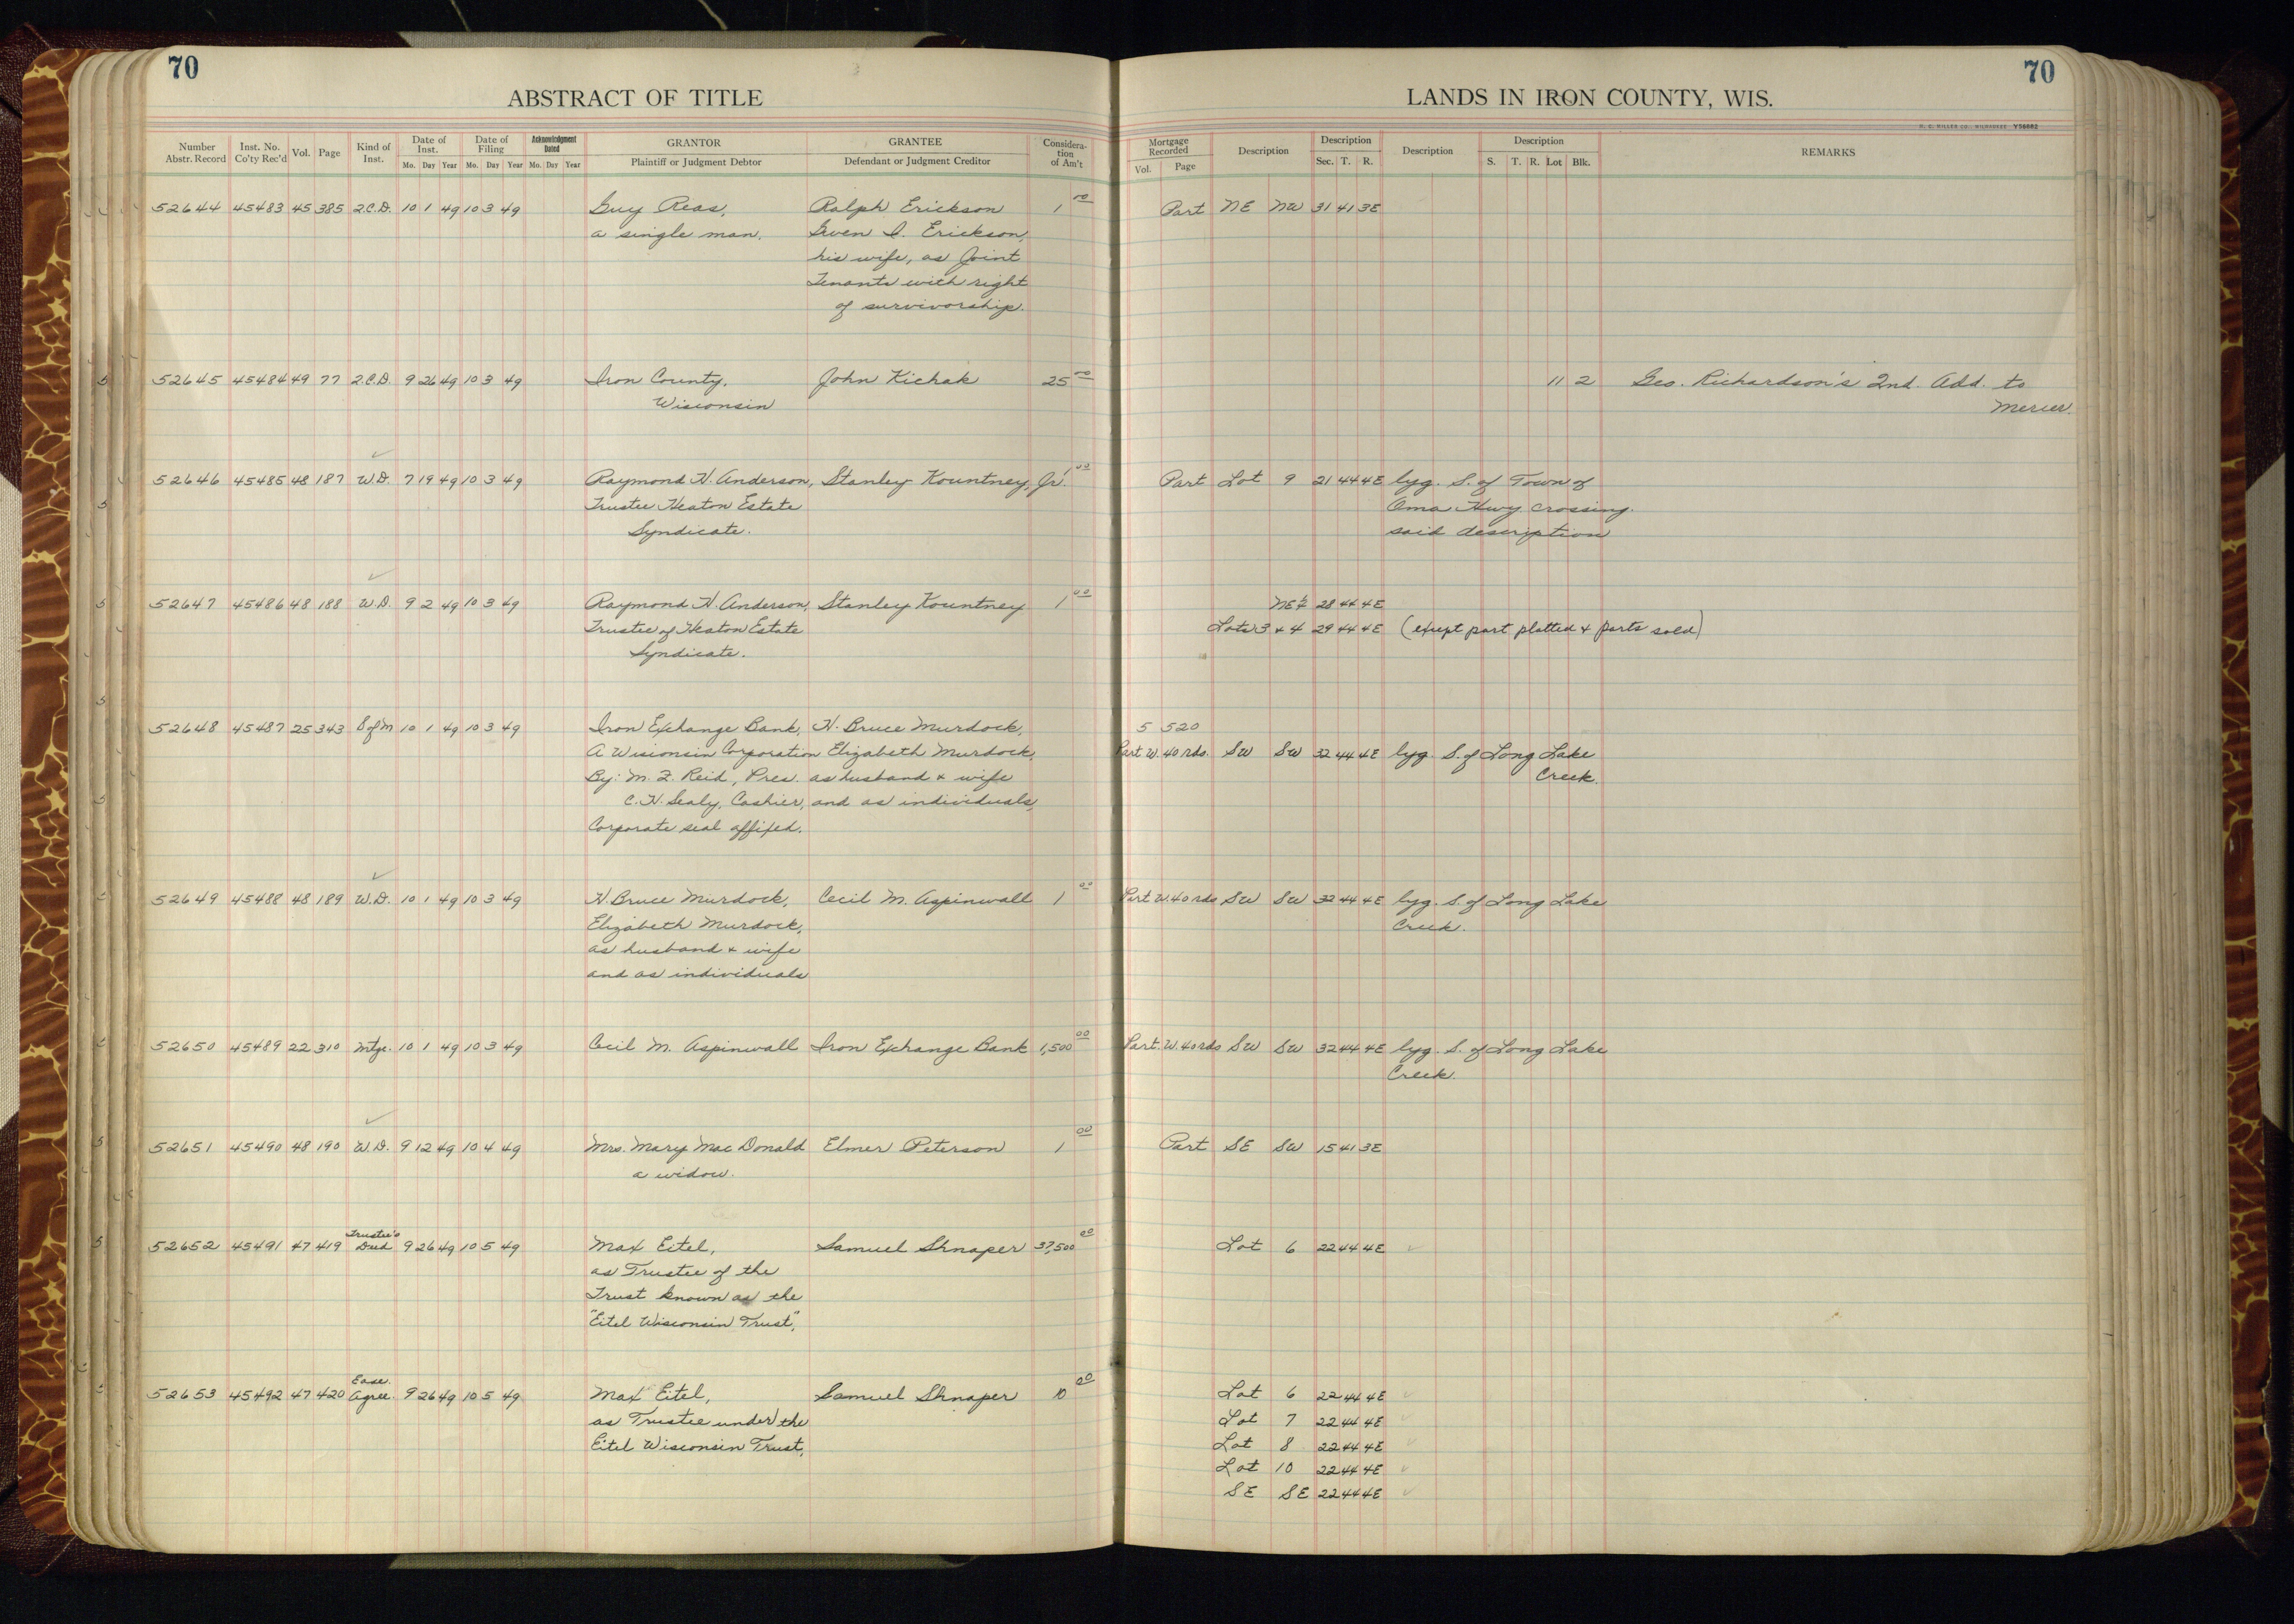 70
ABSTRACT OF TITLE
Number Abstr. Record Inst. No. Co'ty Rec'd Vol. Page Kind of Inst. Date of Inst. Mo. Day Year Date of Filing Mo. Day Year Acknowledgment Dated Mo. Day Year GRANTOR Plaintiff or Judgment Debtor GRANTEE Defendant or Judgment Creditor Considera-tion of Am't
70
LANDS IN IRON COUNTY, WIS.
H. C. MILLER CO., MILWAUKEE Y56682
Mortgage Recorded Vol. Page Description Description Sec. T. R. Description Description S. T. R. Lot Blk. REMARKS
52644 45483 45 385 2.C.D. 10 1 49 10 3 49 Guy Reas, Ralph Erickson 1 00 Part NE NW 31 41 3E
a single man. Gwen I. Erickson,
his wife, as Joint
Tenants with right
of survivorship.
52645 45484 49 77 2.C.D. 9 26 49 10 3 49 Iron County, John Kichak 25 00 11 2 Geo. Richardson's 2nd. Add. to
Wisconsin Mercer.
52646 45485 48 187 W.D. 7 19 49 10 3 49 Raymond H. Anderson, Stanley Kountney, Jr. 1 00 Part Lot 9 21 44 4E lyg. S. of Town of
Trustee Heaton Estate Oma Hwy crossing
Syndicate. said description
52647 45486 48 188 W.D. 9 2 49 10 3 49 Raymond H. Anderson, Stanley Kountney 1 00 NE¼ 28 44 4E
Trustee of Heaton Estate Lots 3 & 4 29 44 4E (exept part platted & parts sold)
Syndicate.
52648 45487 25 343 S of M 10 1 49 10 3 49 Iron Exchange Bank, H. Bruce Murdock, 5 520
A Wisconsin Corporation Elizabeth Murdock, Part W. 40 rds. SW SW 32 44 4E lyg. S. of Long Lake
By: M. Z. Reid, Pres. as husband & wife Creek.
C. H. Sealy, Cashier, and as individuals,
Corporate seal affixed.
52649 45488 48 189 W.D. 10 1 49 10 3 49 H. Bruce Murdock, Cecil M. Aspinwall 1 00 Part W. 40 rds SW SW 32 44 4E lyg. S. of Long Lake
Elizabeth Murdock, Creek.
as husband & wife
and as individuals
52650 45489 22 310 Mtge. 10 1 49 10 3 49 Cecil M. Aspinwall Iron Exchange Bank 1,500 00 Part. W. 40 rds SW SW 32 44 4E lyg. S. of Long Lake
Creek.
52651 45490 48 190 W.D. 9 12 49 10 4 49 Mrs. Mary Mac Donald Elmer Peterson 1 00 Part SE SW 15 41 3E
a widow.
52652 45491 47 419 Trustee's Deed 9 26 49 10 5 49 Max Eitel, Samuel Shnaper 37,500 00 Lot 6 22 44 4E
as Trustee of the
Trust known as the
"Eitel Wisconsin Trust",
52653 45492 47 420 Ease. Agree. 9 26 49 10 5 49 Max Eitel, Samuel Shnaper 10 00 Lot 6 22 44 4E
as Trustee under the Lot 7 22 44 4E
Eitel Wisconsin Trust, Lot 8 22 44 4E
Lot 10 22 44 4E
SE SE 22 44 4E